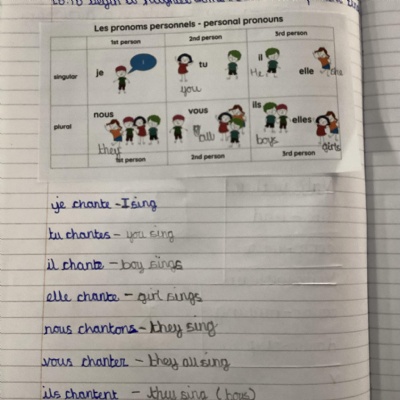 Les pronoms personnels - personal pronouns
1st person 2nd person 3rd person
singular je I tu il elle
you He she
plural nous vous ils elles
they all boys girls
1st person 2nd person 3rd person
je chante - I sing
tu chantes - you sing
il chante - boy sings
elle chante - girl sings
nous chantons - they sing
vous chanter - they all sing
ils chantent - they sing (boys)